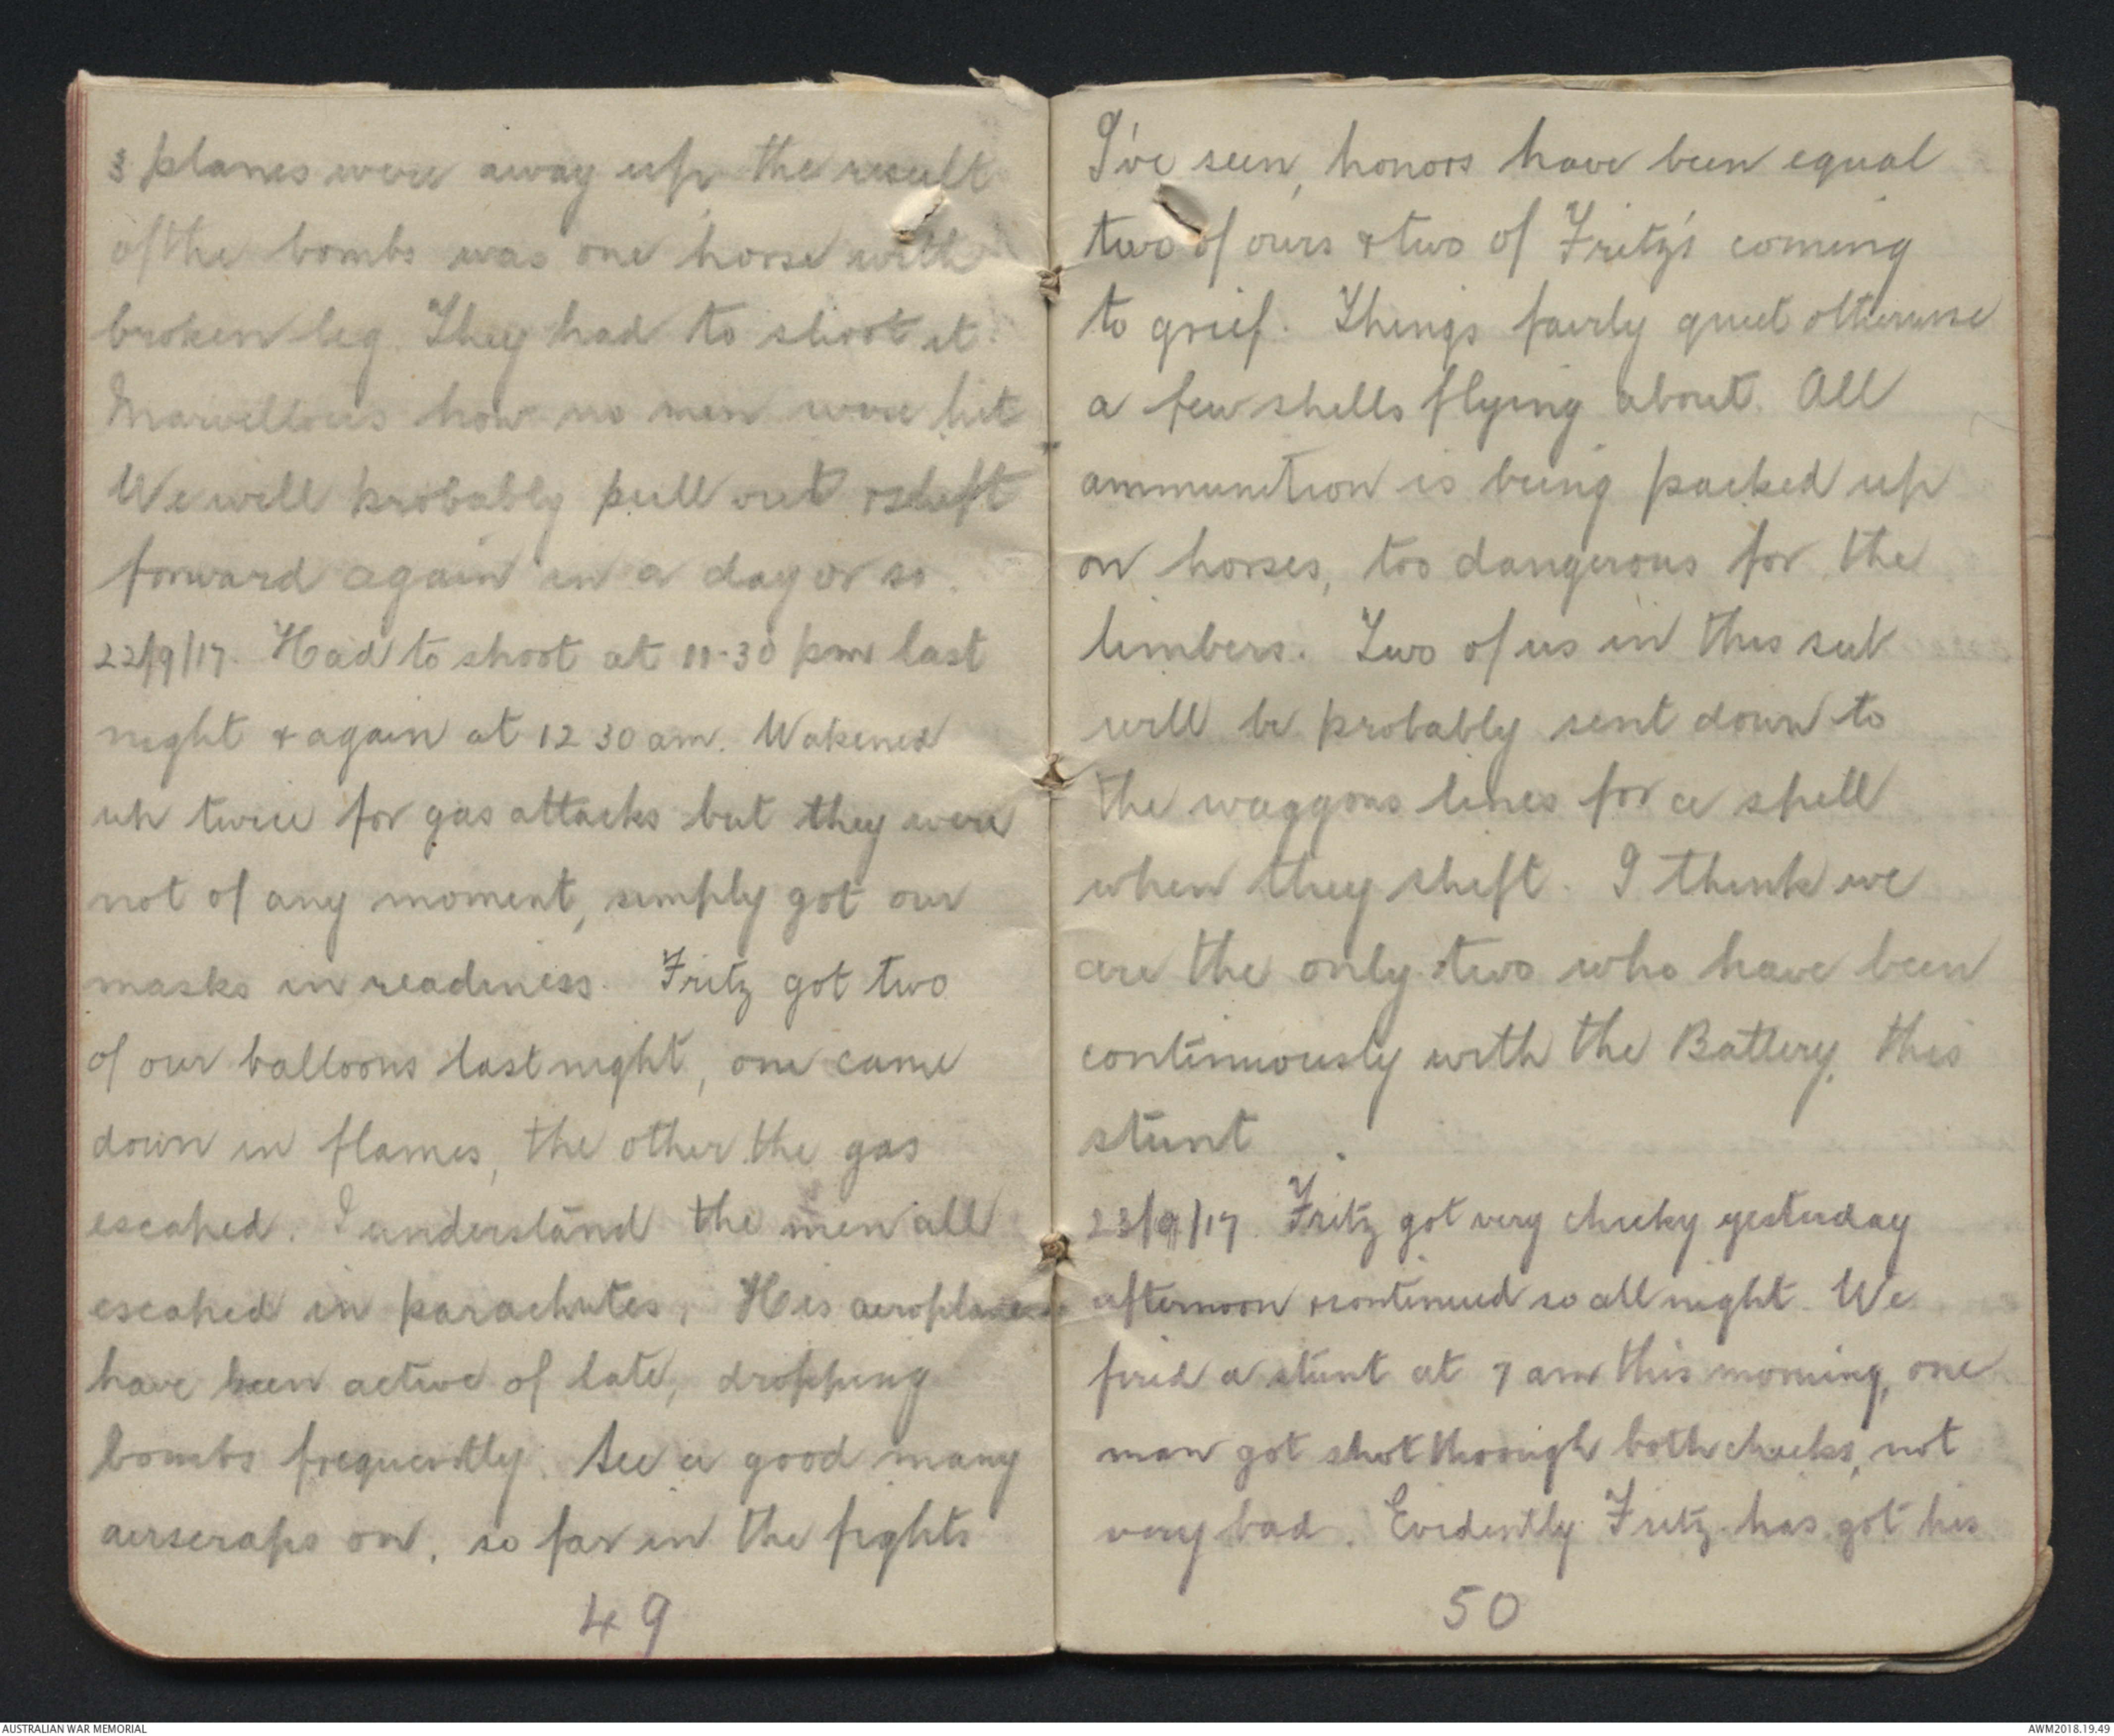 3 planes were away up the result
of the bombs was one horse with
broken leg. They had to shoot it.
Marvellous how no men were hit
We will probably pull out & shift
forward again in a day or so.
22/9/17. Had to shoot at 11-30 pm last
night & again at 12 30 am. Wakened
up twice for gas attacks but they were
not of any moment, simply got our
masks in readiness. Fritz got two
of our balloons last night, one came
down in flames, the other the gas
escaped. I understand the men all
escaped in parachutes. His aeroplanes
have been active of late, dropping
bombs frequently. See a good many
airscraps on, so far in the fights
49
I've seen, honors have been equal
two of ours & two of Fritz's coming
to grief. Things fairly quiet otherwise
a few shells flying about. All
ammunition is being packed up
on horses, too dangerous for the
limbers. Two of us in this sub
will be probably sent down to
the waggons lines for a spell
when they shift. I think we
are the only two who have been
continuously with the Battery this
stunt
23/9/17. Fritz got very cheeky yesterday
afternoon & continued so all night. We
fired a stunt at 7 am this morning, one
man got shot through both cheeks, not
very bad. Evidently Fritz has got his
50
AUSTRALIAN WAR MEMORIAL
AWM2018.19.49